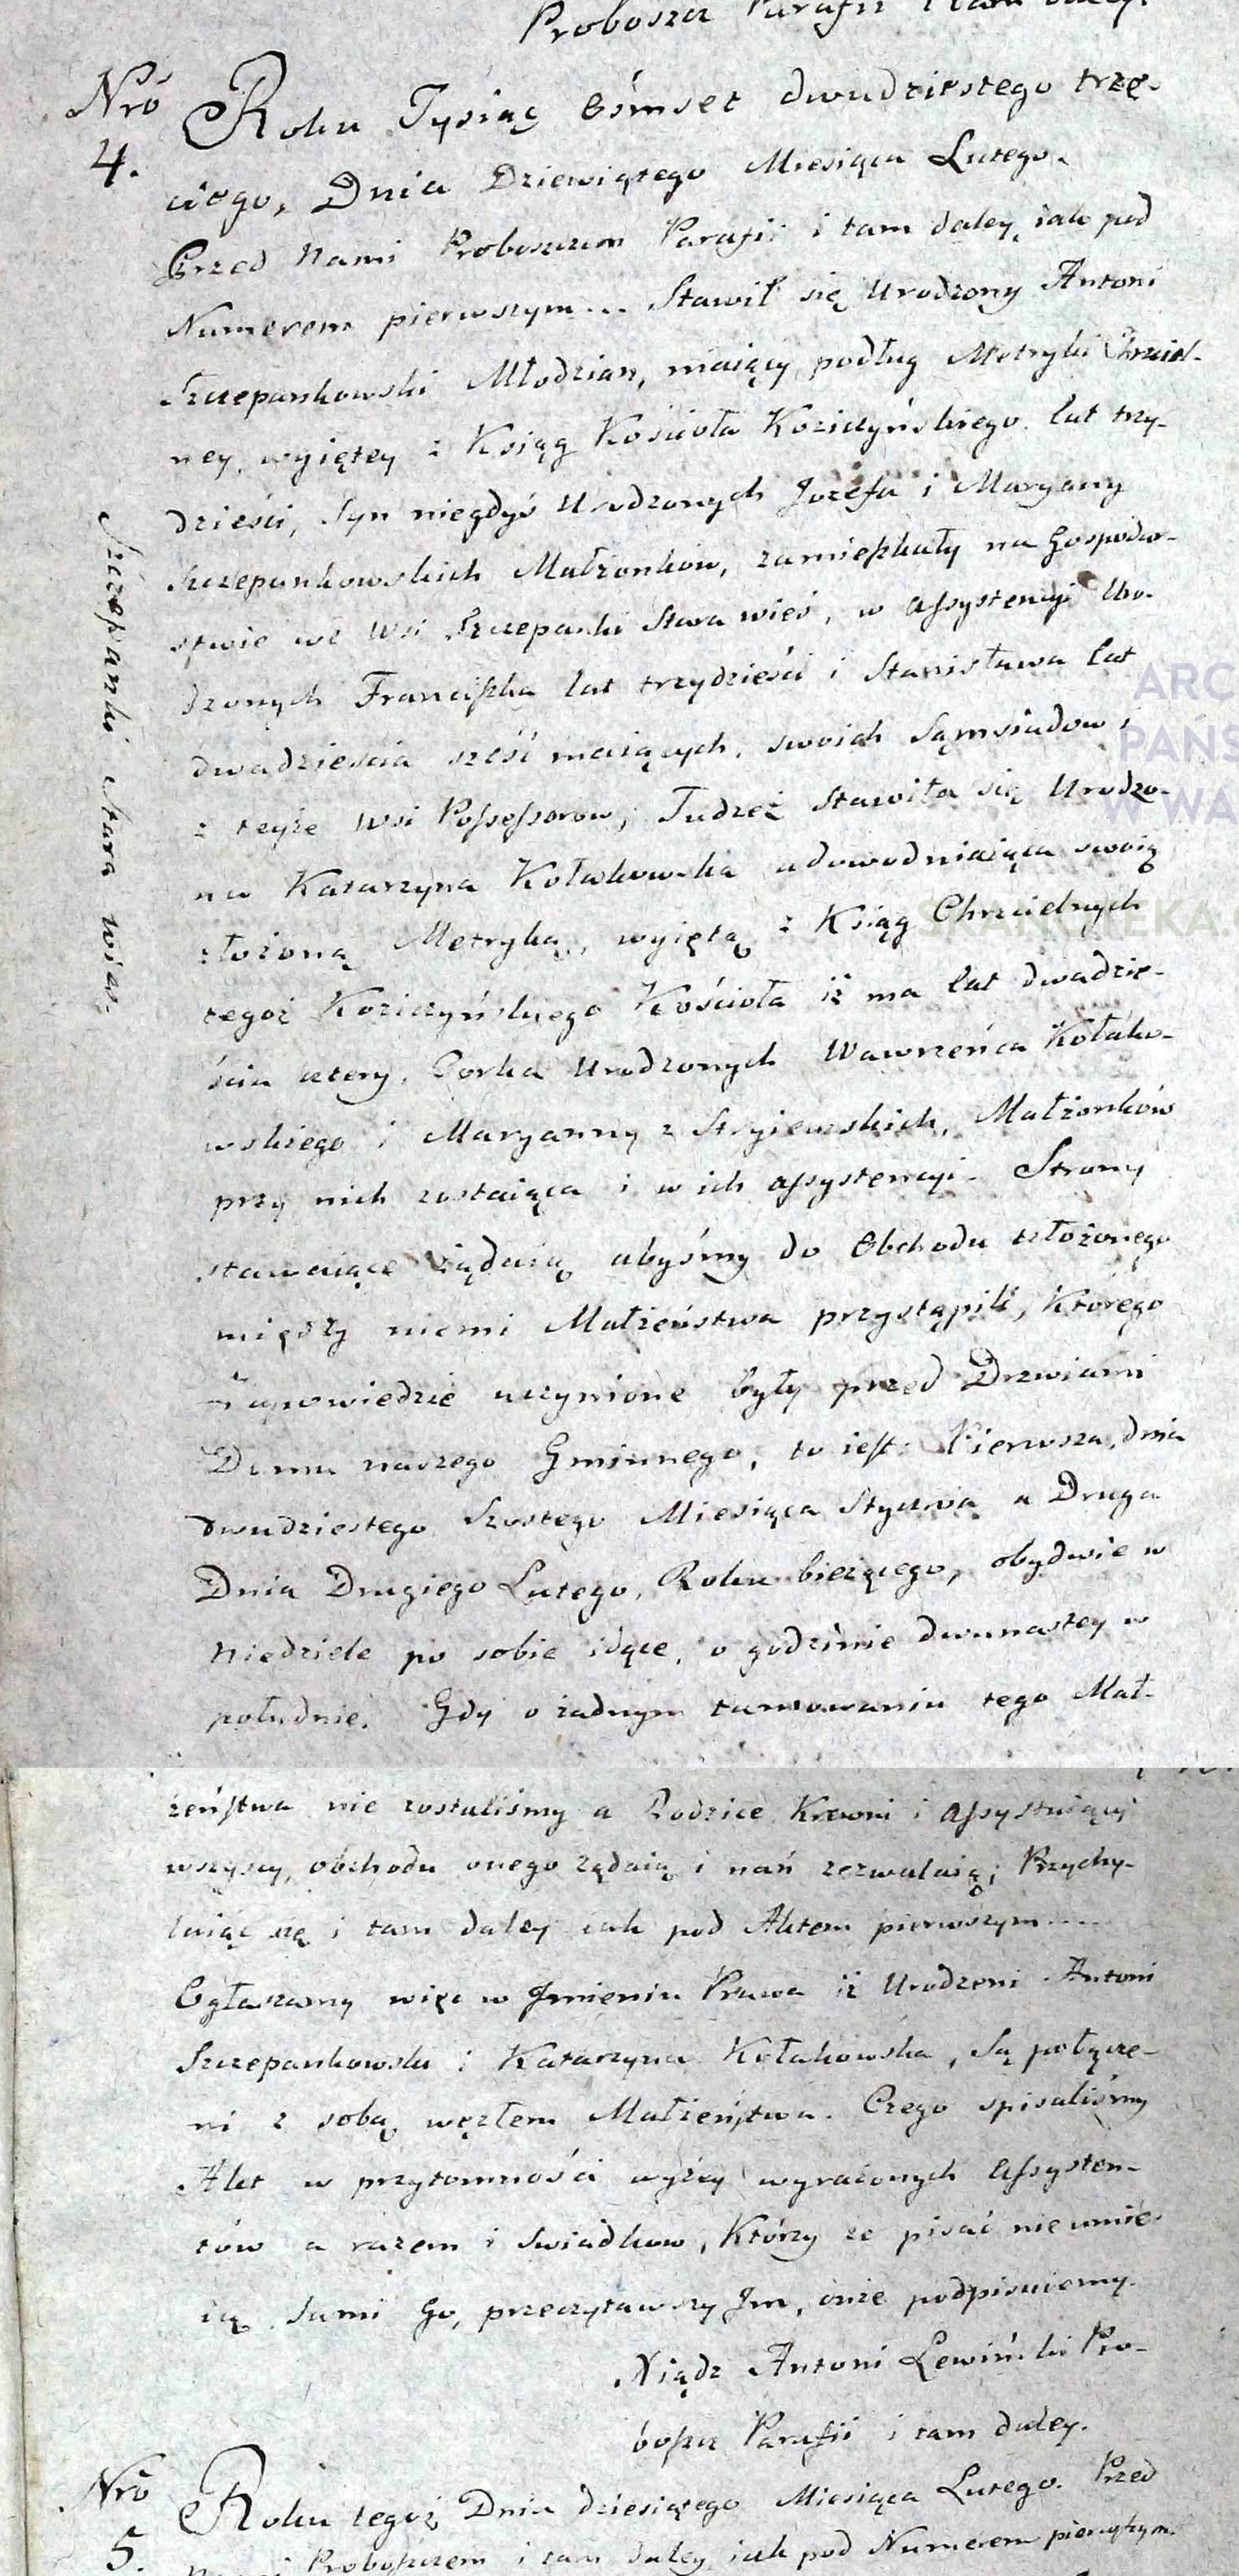 Probosza Parafii i tam daley.
Nrō
4.
Roku Tysiąc Ośmset dwudziestego trze-
ciego, Dnia Dziewiątego Miesiąca Lutego.
Przed Nami Proboszczem Parafii i tam daley, iak pod
Numerem pierwszym... Stawił się Urodzony Antoni
Szczepankowski Młodzian, maiący podług Metryki Chrzciel-
ney, wyiętey z Ksiąg Kościoła Koziczyńskiego lat trzy-
dzieści, Syn niegdyś Urodzonych Jozefa i Maryany
Szczepankowskich Małżonków, zamieszkały na Gospodar-
stwie we Wsi Szczepanki Stara wieś, w assystencyi Uro-
dzonych Franciszka lat trzydzieści i Stanisława lat
dwadzieścia sześć maiących, swoich Sąmsiadow i
z teyże Wsi Possessorow; Tudzeż Stawiła się Urodzo-
na Katarzyna Kołakowska udowodniaiąca swoią
złożoną Metryką, wyiętą z Ksiąg Chrzcielnych
tegoż Koziczyńskiego Kościoła iż ma lat dwadzie-
ścia cztery, Corka Urodzonych Wawrzeńca Kołako-
wskiego i Maryanny z Małżonków
przy nich zostaiąca i w ich assystencyi. Strony
stawaiące żądaią abyśmy do Obchodu ułożonego
między niemi Małżeństwa przystąpili, Którego
Zapowiedzie uczynione były przed Drzwiami
Domu naszego Gminnego, to iest: Pierwsza, dnia
dwudziestego Szostego Miesiąca Stycznia a Druga
Dnia Drugiego Lutego, Roku bieżącego, obydwie w
Niedziele po sobie idące, o godzinie dwunastey w
południe. Gdy o żadnym tamowaniu tego Mał-
żeństwa nie zostaliśmy a Rodzice Krewni i assystuiący
wszyscy, obchodu onego żądaią i nań zezwalaią; Przychy-
laiąc się i tam daley iak pod Aktem pierwszym....
Ogłaszamy więc w Jmieniu Prawa iż Urodzeni Antoni
Szczepankowski i Katarzyna Kołakowska, Są połącze-
ni z sobą węzłem Małżeństwa. Czego spisaliśmy
Akt w przytomności wyżey wyrażonych Assysten-
tów a razem i Swiadkow, Którzy że pisać nie umie-
ią, Sami Go, przeczytawszy Jm, podpisuiemy.
Xiądz Antoni Lewiński Pro-
boszcz Parafii i tam daley.
Nrō
5.
Roku tegoż Dnia dziesiątego Miesiąca Lutego. Przed
Nami Proboszczem i tam daley, iak pod Numerem pierwszym.
Szczepanki Stara wieś.
ARC
PAŃS
W WA
SKANOTEKA.